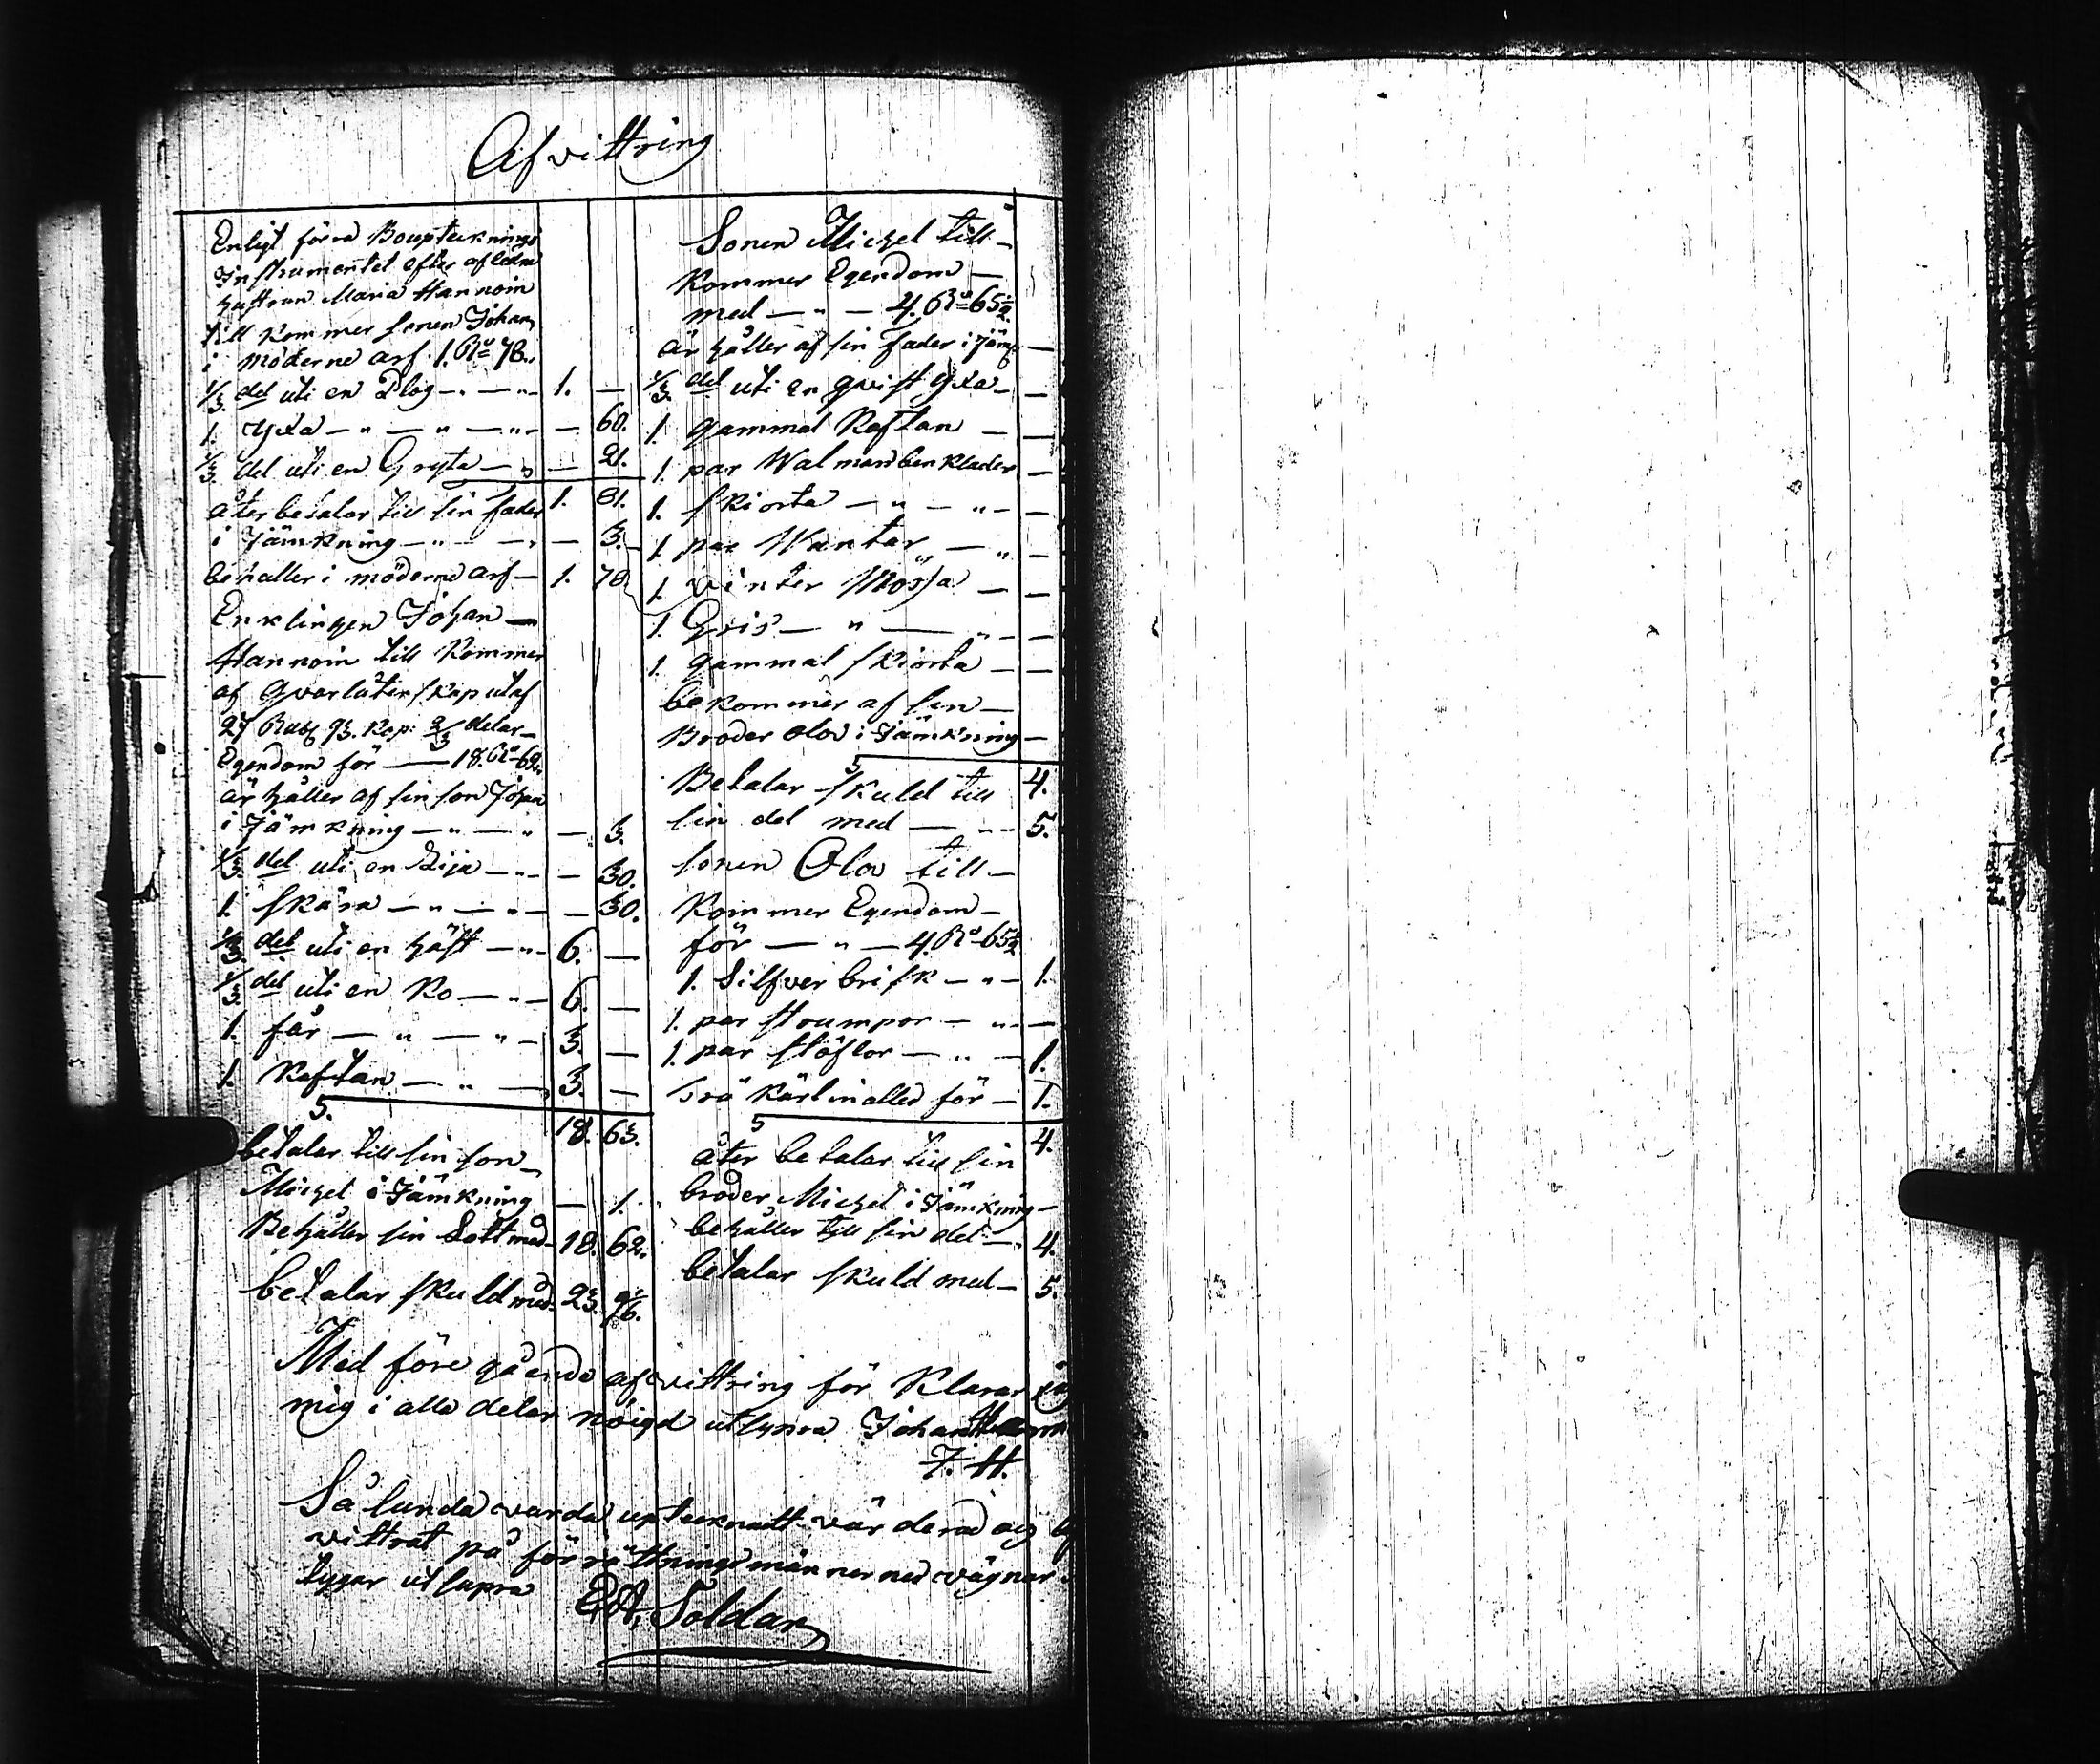 Afvittring
Enligt förra Boupteknings
Instrumentet efter aflidna
hustrun Maria Hannoin
till kommer sonen Johan
i möderne arf. 1. Ru 78.
1/3. del uti en Plog — " — " — 1. —
1. Yxa — " — " — " — — 60.
1/3. del uti en Gryta — " — 21.
1. 81.
åter betalar till sin fader
i Jämkning — " — " — — 3.
behaller i möderne arf — 1. 78.
Enklingen Johan —
Hannoin till kommer
af qvarlåtenskap utaf
27 Rub 93. kop. 2/3 delar —
Egendom för — 18. Ru 62.
är håller af sin son Johan
i Jämkning — " — " — 3.
1/3. del uti en Lija — " — — 30.
1. skära — " — " — — 30.
1/3. del uti en häst — " — 6. —
1/3. del uti en Ko — " — 6. —
1. får — " — " — 3. —
1. Kaftan — " — 3. —
5. 18. 63.
betalar till sin son —
Michel i Jämkning — 1.
Behåller sin Lott med — 18. 62.
betalar skuld med — 23. 96.
Sonen Michel till —
kommer Egendom —
med — " — 4. Ru 65 1/2.
är håller af sin fader i Jämk —
1/3. del uti en qvist yxa — —
1. gammal Kaftan — —
1. par Walmansbenklader —
1. skiorta — " — " — —
1. par Wantar — " —
1. vinter Mössa — —
1. Gris — " — " — —
1. gammal skiorta — —
bekommer af sin —
Broder Olov i Jämkning —
5 4.
Betalar skuld till
sin del med — " — 5.
sonen Olov till —
kommer Egendom —
för — " — 4. Ru 65 1/2
1. Silfver brisk — " — 1.
1. par strumpor — " — —
1. par stöflor — " — 1.
trä kärl in alles för — 1.
5 4.
åter betalar till sin
broder Michel i Jämkning —
behåller till sin del — 4.
betalar skuld med — 5.
Med före gående afvittring för klarar jag
mig i alla delar nöigd ut supra Johan Hann
J. H.
Så lunda varda uptecknatt värderad och
vittrat på förrättningsmännernas vägnar
tygar ut supra
Ed. Soldan